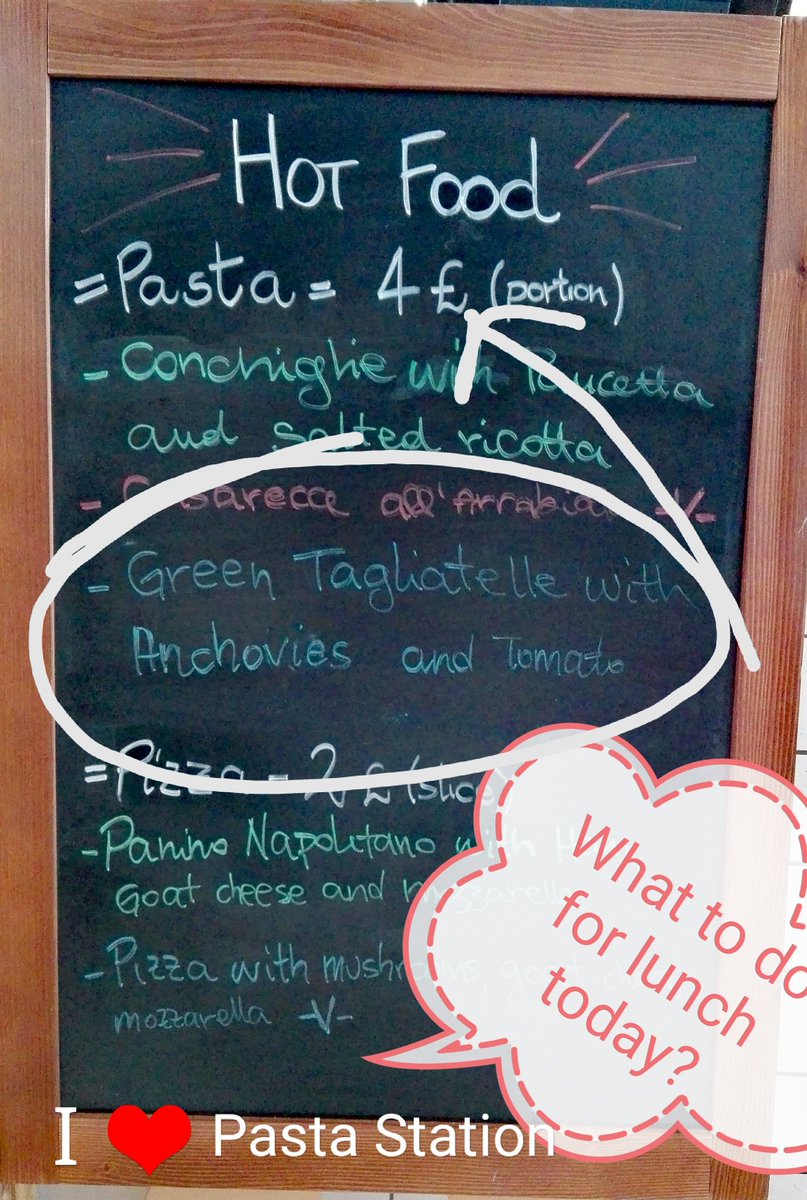 HOT FOOD
= Pasta = 4 £ (portion)
- Conchiglie with Pancetta
and salted ricotta
- Casarecce all'Arrabiata -V-
- Green Tagliatelle with
Anchovies and Tomato
= Pizza - 2 £ (slice)
- Panino Napolitano with
Goat cheese and mozzarella
- Pizza with mushrooms, goat
mozzarella -V-
What to do
for lunch
today?
I ❤ Pasta Station